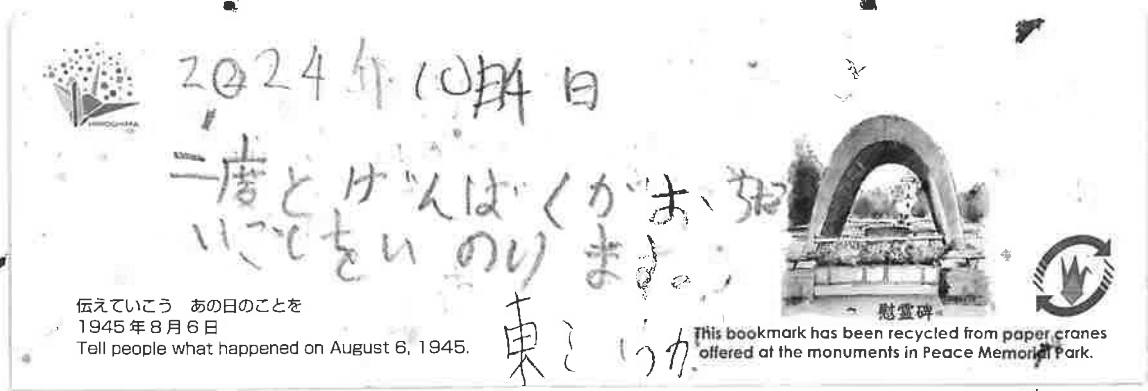 2024年10月4日
二度とげんばくがおちな
いことをいのります。
伝えていこう あの日のことを
1945年8月6日
Tell people what happened on August 6, 1945.
東
慰霊碑
This bookmark has been recycled from paper cranes
offered at the monuments in Peace Memorial Park.
HIROSHIMA